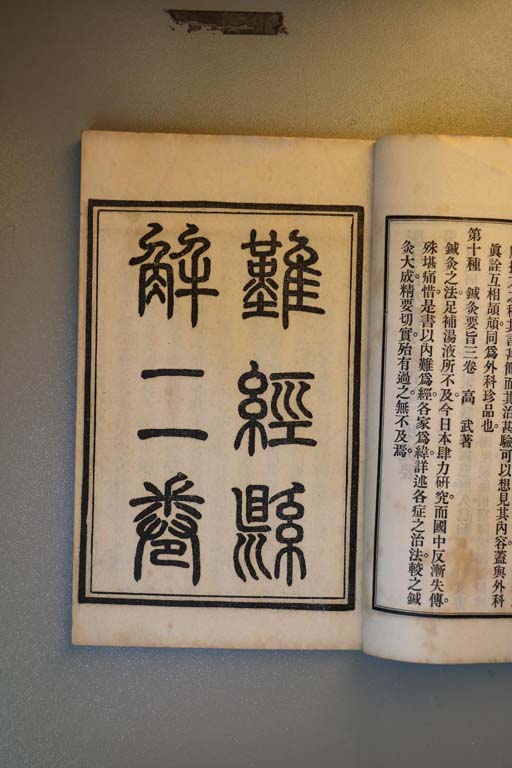 眞詮互相頡頏同爲外科珍品也。
第十種 鍼灸要旨三卷 高 武著
鍼灸之法足補湯液所不及今日本肆力研究而國中反漸失傳。
殊堪痛惜是書以內難爲經各家爲緯詳述各症之治法較之鍼
灸大成精要切實殆有過之無不及焉。
難經縣
解二卷